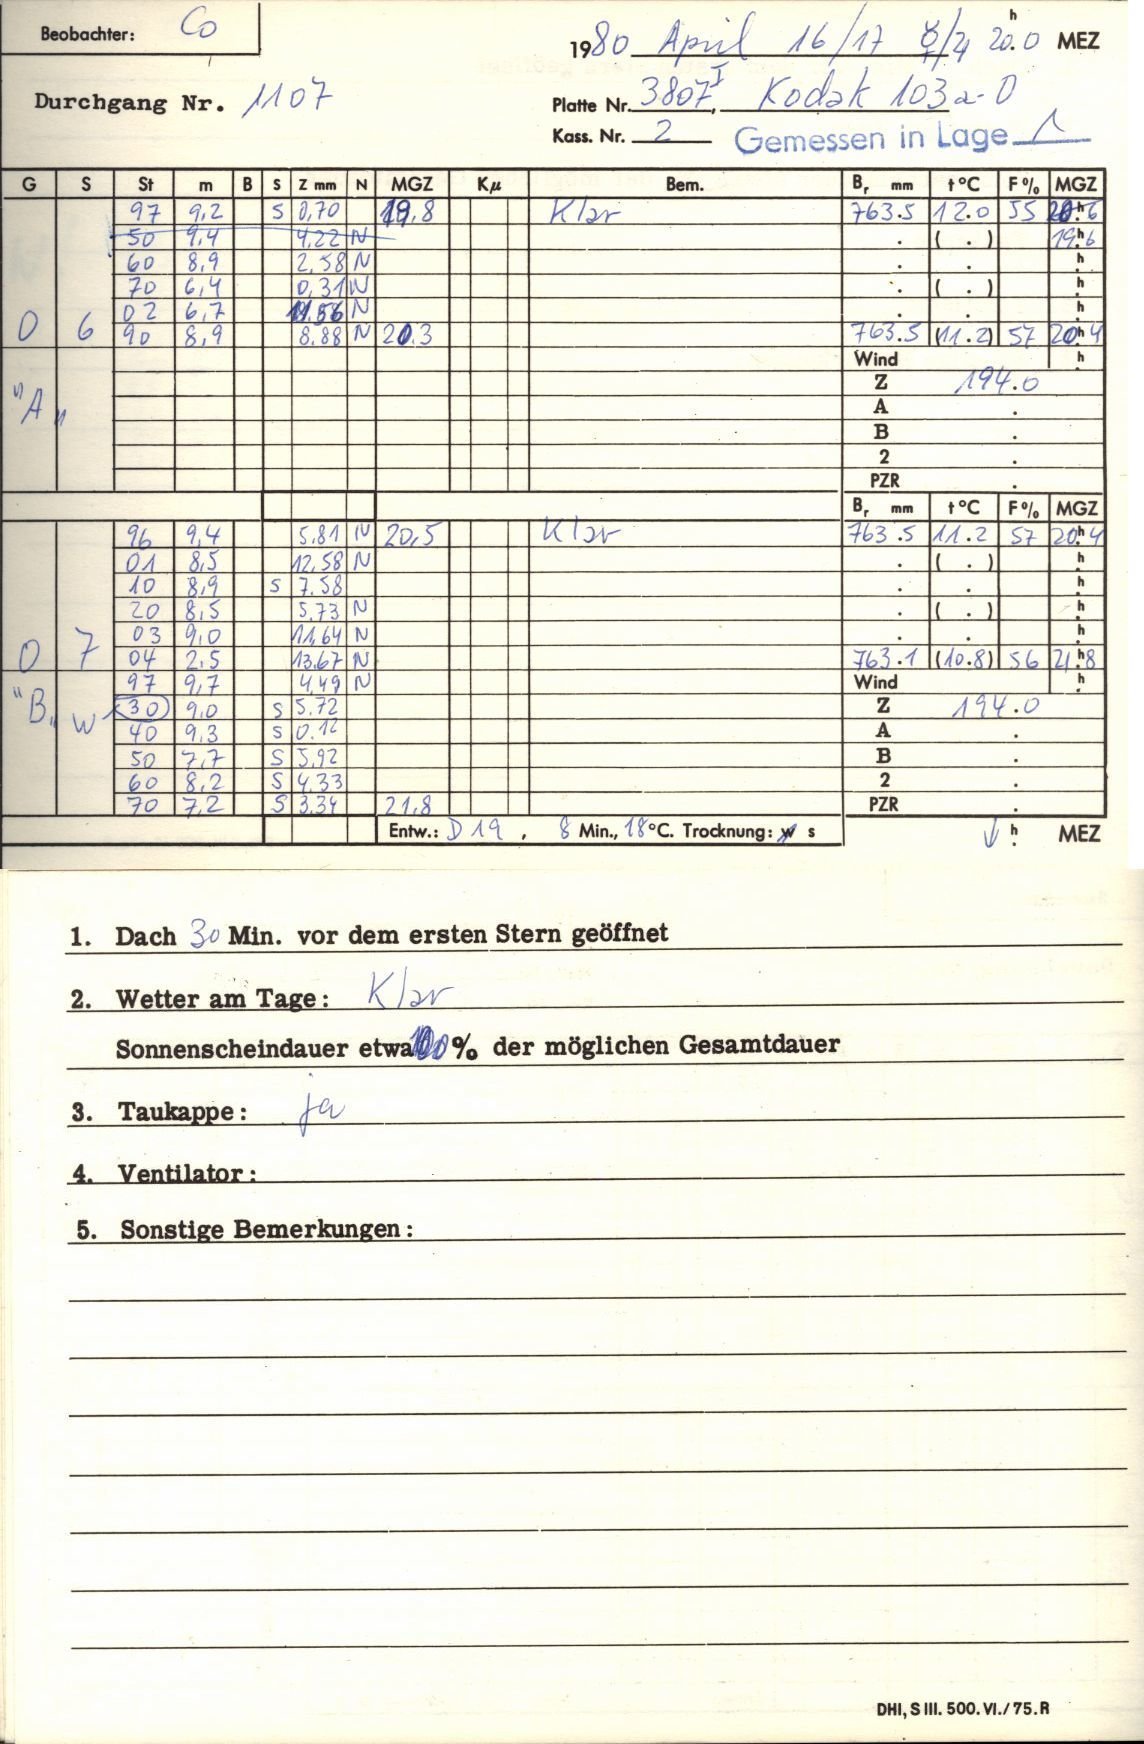 Beobachter: Co
1980 April 16/17 ☿/♃ 20.0 h MEZ
Durchgang Nr. 1107
Platte Nr. 3807 I, Kodak 103a-O
Kass. Nr. 2 Gemessen in Lage 1
G S St m B S Z mm N MGZ Kμ Bem. Br mm t °C F % MGZ
97 9,2 S 0,70 19,8 Klar 763.5 12.0 55 20.h6
50 9,4 4,22 N . ( . ) 19.h6
60 8,9 2,58 N . . h
70 6,4 0,31 N . ( . ) h
02 6,7 11.56 N . . h
0 6 90 8,9 8.88 N 20.3 763.5 (11.2) 57 20.h4
Wind h
Z 194.0
"A" A .
B .
2 .
PZR .
Br mm t °C F % MGZ
96 9,4 5.81 N 20,5 Klar 763.5 11.2 57 20.h4
01 8,5 12,58 N . ( . ) h
10 8,9 S 7.58 . . h
20 8,5 5,73 N . ( . ) h
03 9,0 11,64 N . . h
0 7 04 2,5 13.67 N 763.1 (10.8) 56 21.h8
97 9,7 4,49 N Wind h
"B" W 30 9,0 S 5.72 Z 194.0
40 9,3 S 0.12 A .
50 7,7 S 5,92 B .
60 8,2 S 4,33 2 .
70 7,2 S 3,34 21,8 PZR .
Entw.: D 19, 8 Min., 18 °C. Trocknung: w s h MEZ
1. Dach 30 Min. vor dem ersten Stern geöffnet
2. Wetter am Tage: Klar
Sonnenscheindauer etwa 100 % der möglichen Gesamtdauer
3. Taukappe: ja
4. Ventilator:
5. Sonstige Bemerkungen:
DHI, S III. 500. VI./75. R